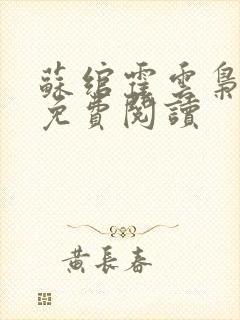 蘇綰霍雲梟
免費閱讀
黃長春